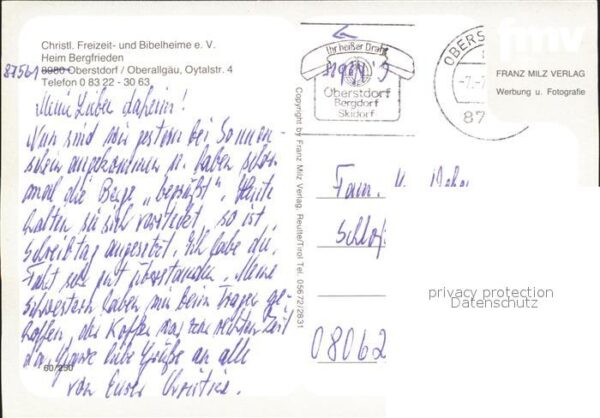 Christl. Freizeit- und Bibelheime e. V.
Heim Bergfrieden
87561
8980 Oberstdorf / Oberallgäu, Oytalstr. 4
Telefon 0 83 22 - 30 63
Meine Lieben daheim!
Nun sind wir gestern bei Sonnen-
schein angekommen u. haben schon
mal die Berge „begrüßt". Heute
halten sie sich versteckt, so ist
Schreibtag angesetzt. Ich habe die
Fahrt sehr gut überstanden. Meine
Schwestern haben mir beim Tragen ge-
holfen, der Koffer war zur rechten Zeit
da. Ganz liebe Grüße an alle
von Eurer Christine.
60/230
Copyright by Franz Milz Verlag, Reutte/Tirol Tel. 05672/2831
Ihr heißer Draht
Oberstdorf
Bergdorf
Skidorf
OBERS
87
fmv
FRANZ MILZ VERLAG
Werbung u. Fotografie
Fam.
08062
privacy protection
Datenschutz